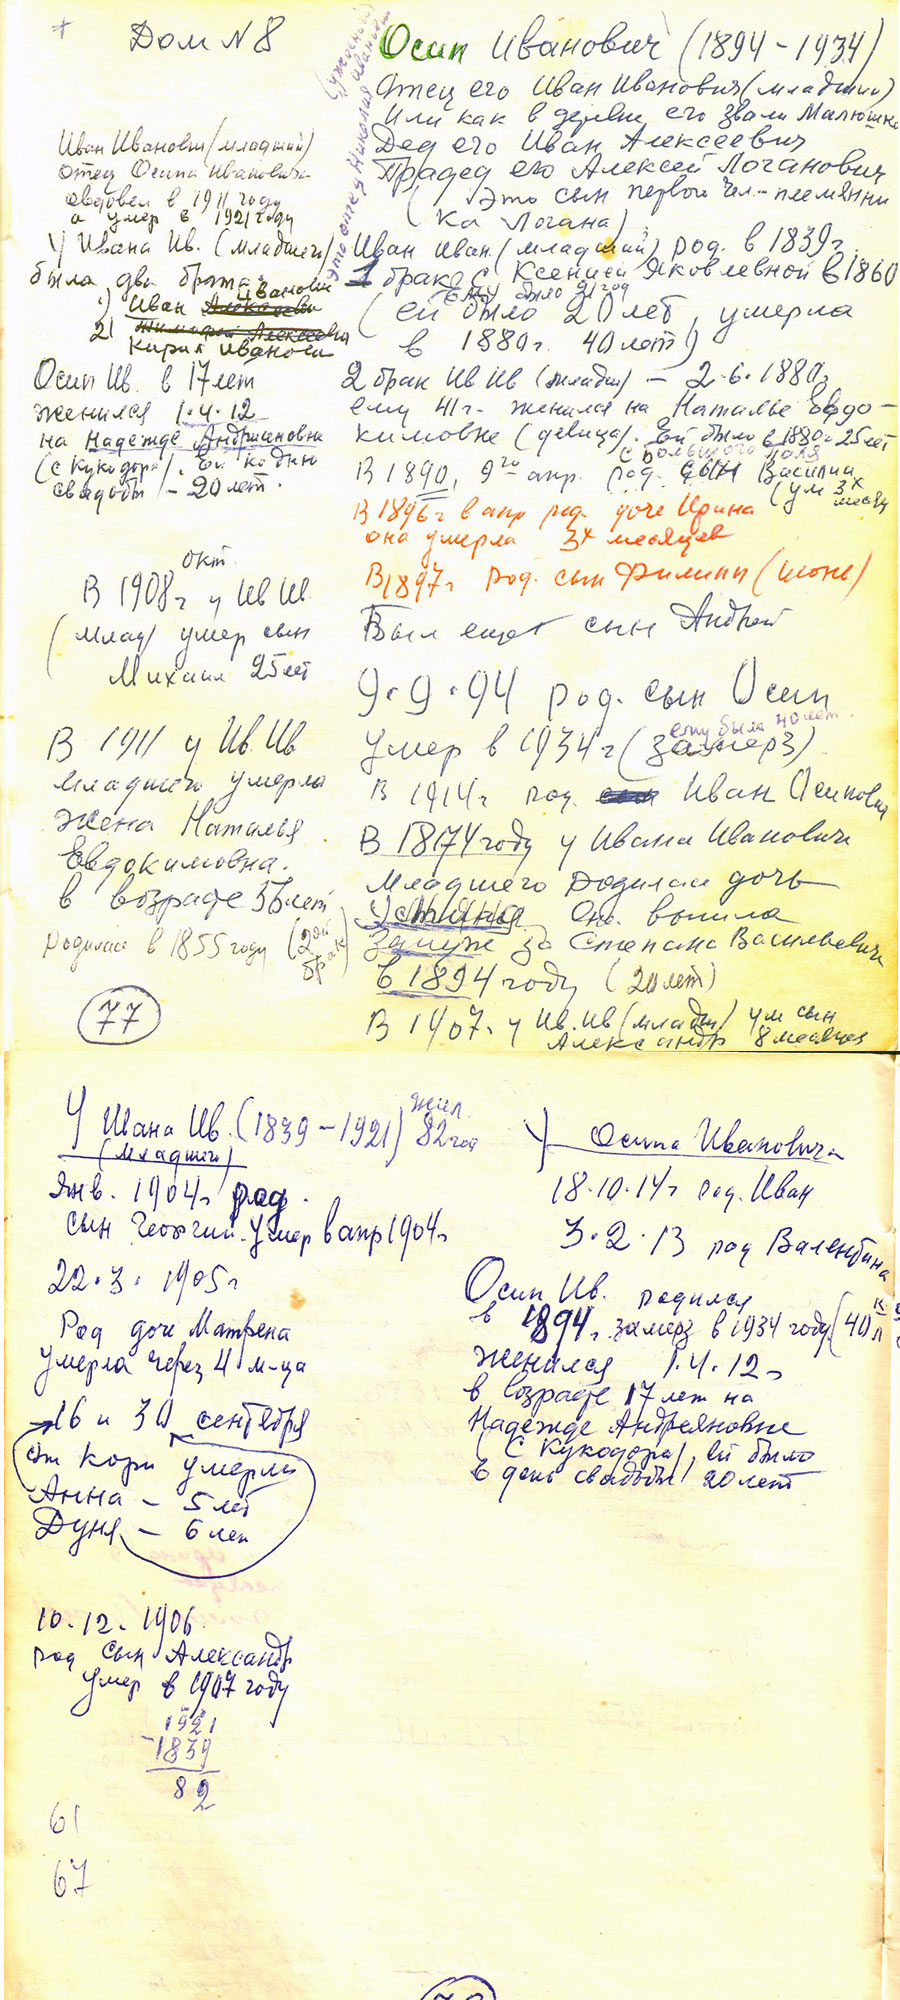 Дом N 8
Иван Иванович (младший)
отец Осипа Ивановича
овдовел в 1911 году
а умер в 1921 году
У Ивана Ив. (младшего)
было два брата
1) Иван Иванович
2) Кирил Иванови
Осип Ив. в 17 лет
женился 1.4.12
на Надежде Андриановне
(с Кукодора). Ей ко дню
свадьбы - 20 лет.
окт.
В 1908 г у Ив Ив.
(млад) умер сын
Михаил 25 лет
В 1911 у Ив. Ив
младшего умерла
жена Наталья
Евдокимовна.
в возрасте 56 лет
родилась в 1855 году (2ой брак)
77
это отец Николая Ивановича
Осип Иванович (1894-1934)
Отец его Иван Иванович (младший)
или как в деревне его звали Малюшка
Дед его Иван Алексеевич
Прадед его Алексей Логанович
(это сын первой чел - племянни
ка Логана)
Иван Иван (младший) род. в 1839г.
1 брак с Ксенией Яковлевной в 1860
ему было 21 год
(ей было 20 лет, умерла
в 1880г. 40 лет)
2 брак Ив Ив (младш) - 2.6.1880г
ему 41 г. женился на Наталье Евдо-
кимовне (девица). Ей было в 1880г 25 лет
с Большого поля
В 1890, 9го апр. род. сын Василий
(ум 3х месяц
В 1896 г в апр род. дочь Ирина
она умерла 3х месяцев
В 1897г род. сын Филипп (июнь)
Был еще сын Андрей
9.9.94 род. сын Осип
ему было 40 лет.
умер в 1934 г (замерз)
В 1914г род. Иван Осипович
В 1874 году у Ивана Ивановича
Младшего родилась дочь
Устинья Она вышла
замуж за Степана Васильевича
в 1894 году (20 лет)
В 1907г у Ив. Ив (младш) ум сын
Александр 8 месяцев
У Ивана Ив. (1839-1921) жил 82 год
(младшего)
Янв. 1904г род.
сын Георгий. Умер в апр 1904г
22.3.1905г
Род дочь Матрена
умерла через 4 м-ца
16 и 30 сентября
от кори умерли
Анна - 5 лет
Дуня - 6 лет
10.12.1906
род сын Александр
умер в 1907 году
1921
-1839
82
61
67
У Осипа Ивановича
18.10.14г род. Иван
3.2.13 род Валентина
Осип Ив. родился
в 1894г. замерз в 1934 году (40 л
женился 1.4.12г
в возрасте 17 лет на
Надежде Андреяновне
(с Кукодора), ей было
в день свадьбы 20 лет